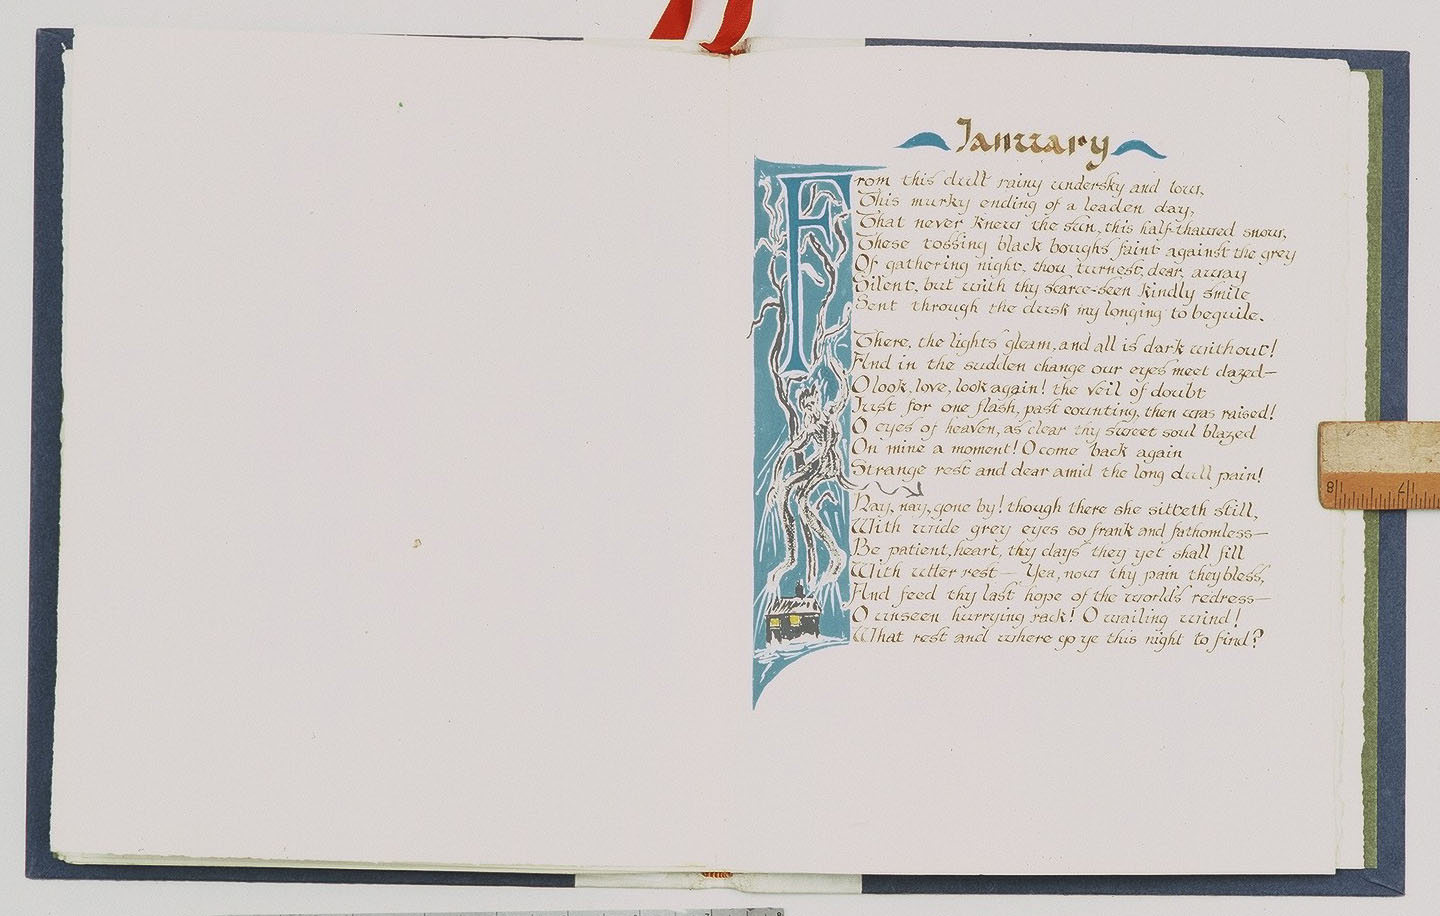 January
From this dull rainy undersky and low,
This murky ending of a leaden day,
That never knew the sun, this half-thawed snow,
These tossing black boughs faint against the grey
Of gathering night, thou turnest, dear, away
Silent, but with thy scarce-seen kindly smile
Sent through the dusk my longing to beguile.
There, the lights gleam, and all is dark without!
And in the sudden change our eyes meet dazed—
O look, love, look again! the veil of doubt
Just for one flash, past counting, then was raised!
O eyes of heaven, as clear thy sweet soul blazed
On mine a moment! O come back again
Strange rest and dear amid the long dull pain!
Nay, nay, gone by! though there she sitteth still,
With wide grey eyes so frank and fathomless—
Be patient, heart, thy days they yet shall fill
With utter rest— Yea, now thy pain they bless,
And feed thy last hope of the world's redress—
O unseen hurrying rack! O wailing wind!
What rest and where go ye this night to find?
8 7